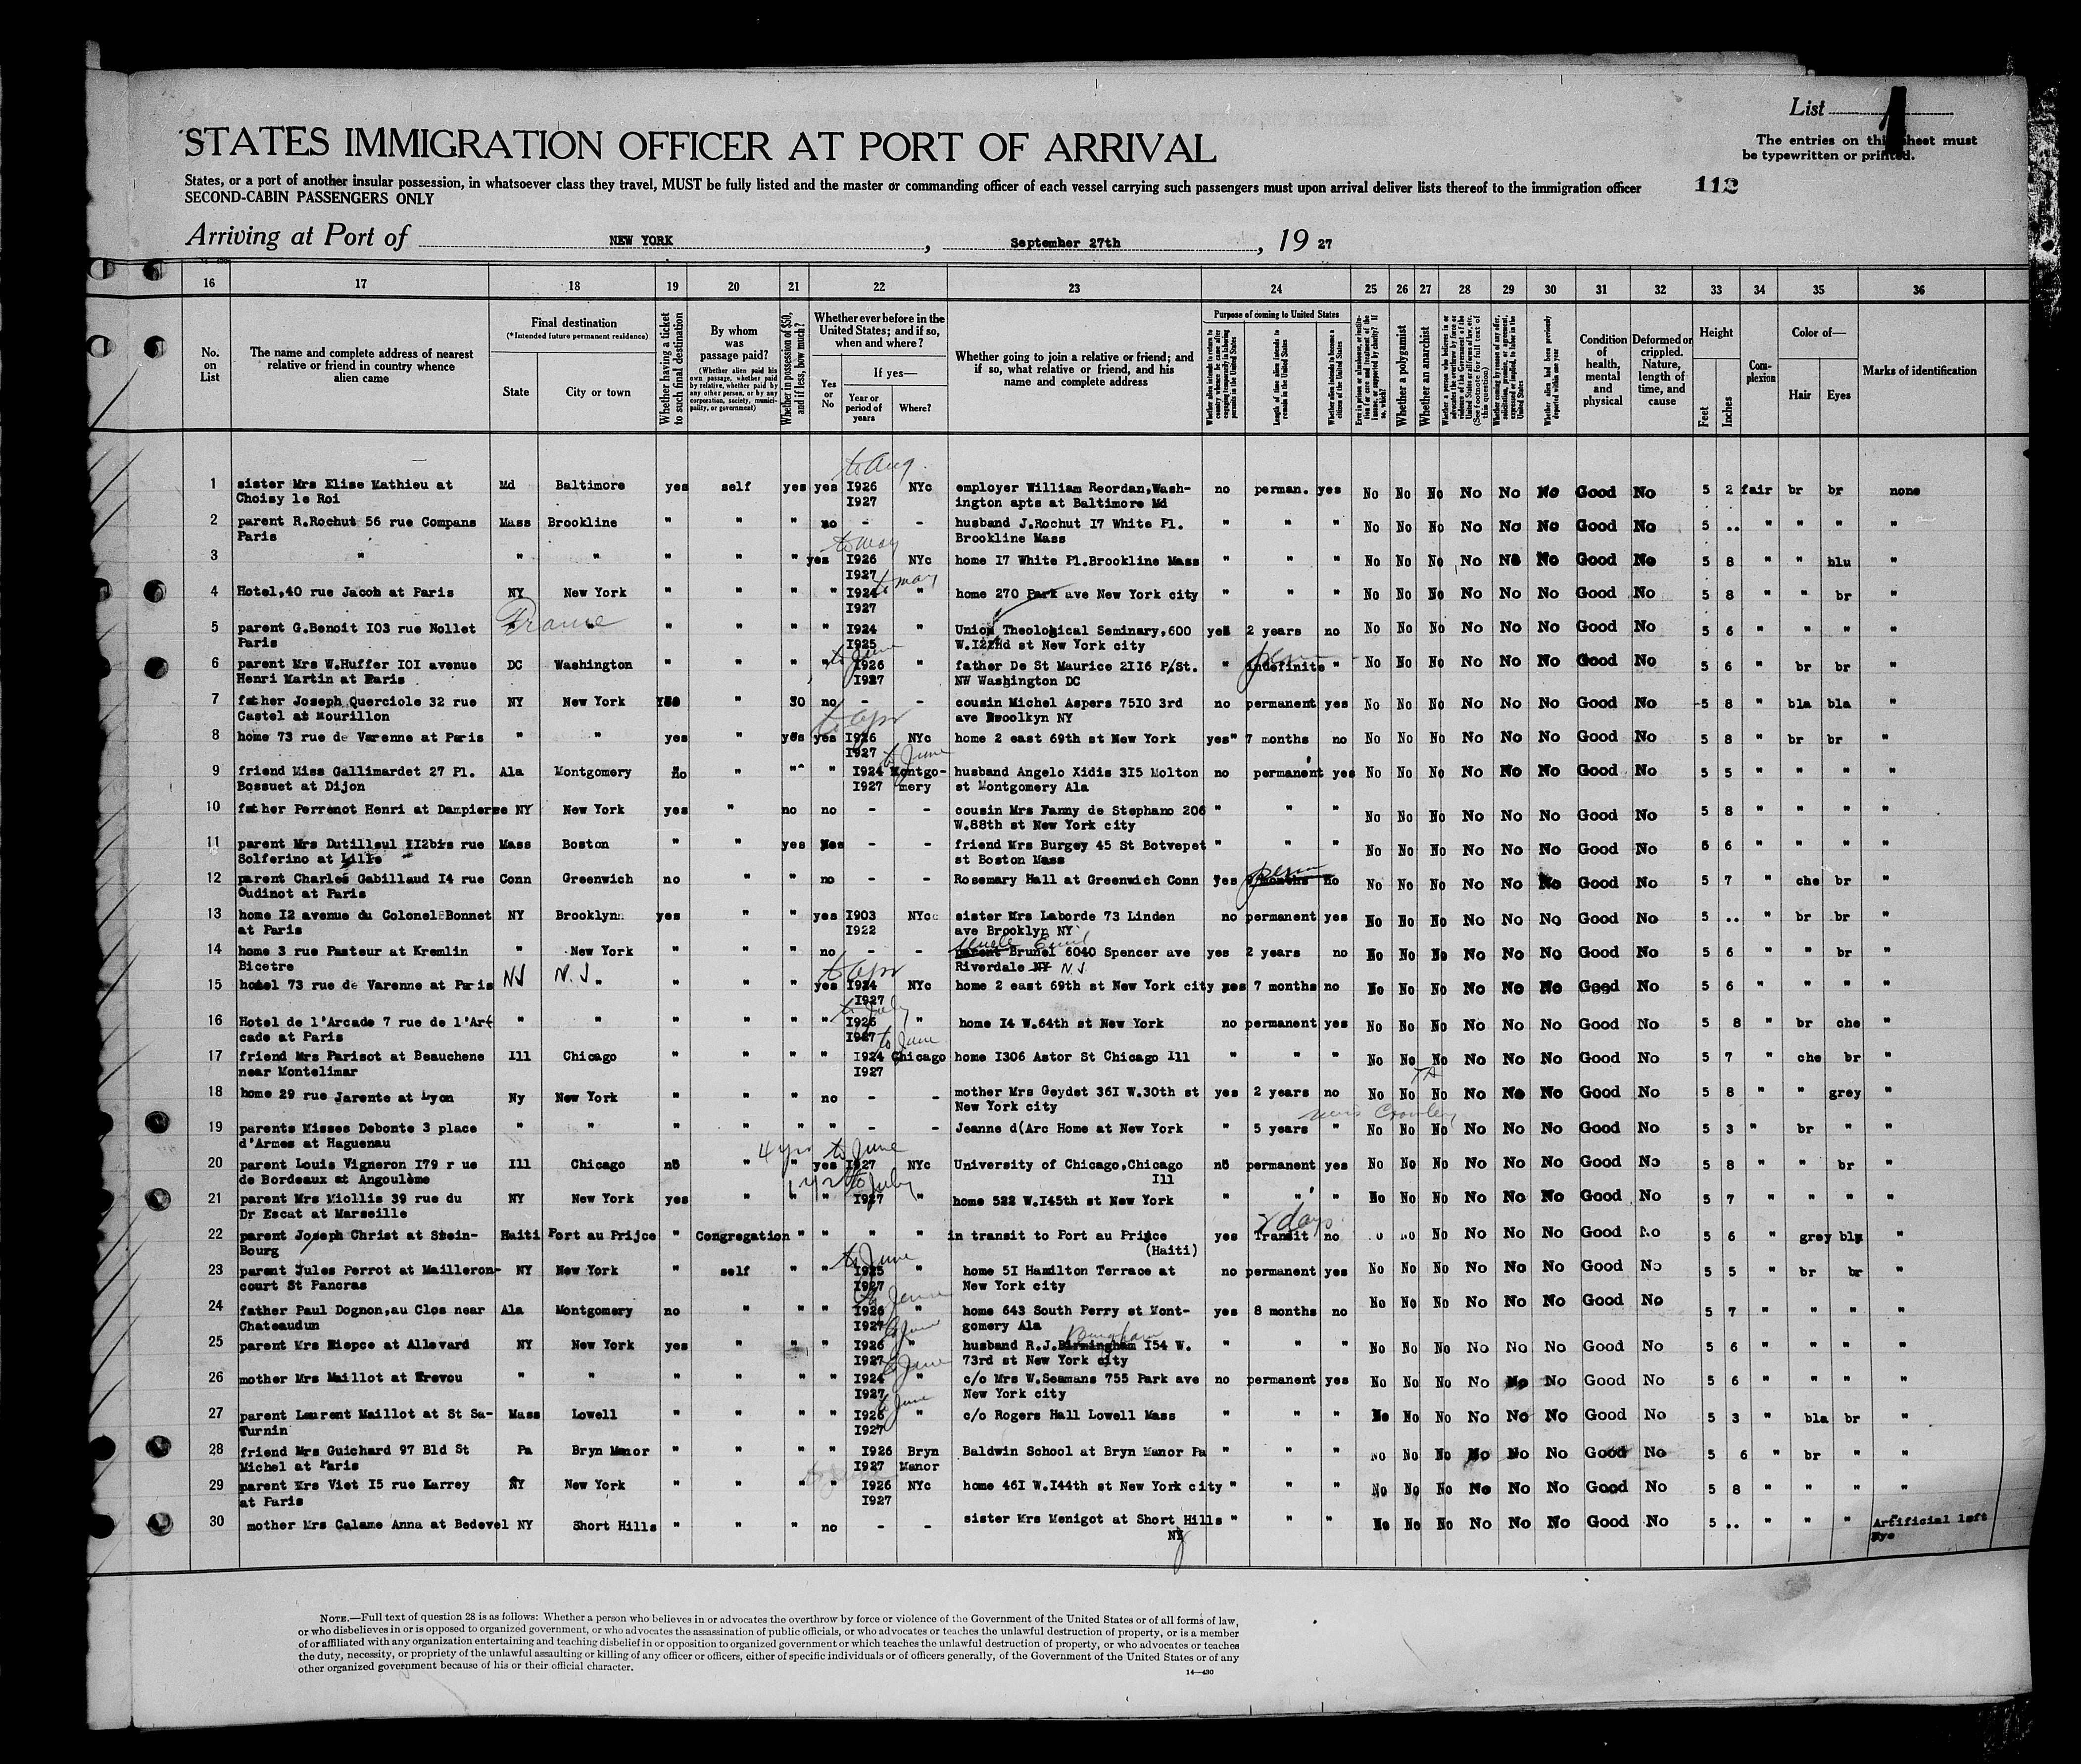 List 1
STATES IMMIGRATION OFFICER AT PORT OF ARRIVAL
The entries on this sheet must
be typewritten or printed.
States, or a port of another insular possession, in whatsoever class they travel, MUST be fully listed and the master or commanding officer of each vessel carrying such passengers must upon arrival deliver lists thereof to the immigration officer
112
SECOND-CABIN PASSENGERS ONLY
Arriving at Port of NEW YORK, September 27th, 19 27
16 17 18 19 20 21 22 23 24 25 26 27 28 29 30 31 32 33 34 35 36
No. on List
The name and complete address of nearest relative or friend in country whence alien came
Final destination
(*Intended future permanent residence)
State
City or town
Whether having a ticket to such final destination
By whom was passage paid?
(Whether alien paid his own passage, whether paid by relative, whether paid by any other person, or by any corporation, society, municipality, or government)
Whether in possession of $50, and if less, how much?
Whether ever before in the United States; and if so, when and where?
Yes or No
If yes—
Year or period of years
Where?
Whether going to join a relative or friend; and if so, what relative or friend, and his name and complete address
Purpose of coming to United States
Length of time alien intends to remain in the United States
Whether alien intends to become a citizen of the United States
Whether a polygamist
Whether an anarchist
Condition of health, mental and physical
Deformed or crippled. Nature, length of time, and cause
Height
Feet
Inches
Complexion
Color of—
Hair
Eyes
Marks of identification
to Aug.
1 sister Mrs Elise Mathieu at Md Baltimore yes self yes yes I926 NYc employer William Reordan,Wash- no perman. yes No No No No No No Good No 5 2 fair br br none
Choisy le Roi I927 ington apts at Baltimore Md
2 parent R.Rochut 56 rue Compans Mass Brookline " " " no - - husband J.Rochut I7 White Pl. " " " No No No No No No Good No 5 .. " " " "
Paris Brookline Mass
to May
3 " " " " " " yes I926 NYc home I7 White Pl.Brookline Mass " " " No No No No No No Good No 5 8 " " blu "
I927
to may
4 Hotel,40 rue Jacob at Paris NY New York " " " " I924 " home 270 Park ave New York city " " " No No No No No No Good No 5 8 " " br "
I927
France
5 parent G.Benoit I03 rue Nollet " " " " " " I924 " Union Theological Seminary,600 yes 2 years no No No No No No No Good No 5 6 " " " "
Paris I925 W.I22Nd st New York city
to June perm
6 parent Mrs W.Huffer I0I avenue DC Washington " " " " I926 " father De St Maurice 2II6 P/St. " indefinite " No No No No No No Good No 5 6 " br br "
Henri Martin at Paris I927 NW Washington DC
7 father Joseph Querciole 32 rue NY New York Yes " 30 no - - cousin Michel Aspers 75I0 3rd no permanent yes No No No No No No Good No 5 8 " bla bla "
Castel at Mourillon ave NY
to Apr
8 home 73 rue de Varenne at Paris " " yes " yes yes I926 NYc home 2 east 69th st New York yes" 7 months no No No No No No No Good No 5 8 " br br "
I927
to June
9 friend Miss Gallimardet 27 Pl. Ala Montgomery no " " " I924 Montgo- husband Angelo Xidis 3I5 Molton no permanent yes No No No No No No Good No 5 5 " " " "
Bossuet at Dijon I927 mery st Montgomery Ala
10 father Perrenot Henri at Dampierre NY New York yes " no no - - cousin Mrs Fanny de Stephano 206 " " " No No No No No No Good No 5 8 " " " "
W.88th st New York city
11 parent Mrs Dutilleul II2bis rue Mass Boston " " yes Yes - - friend Mrs Burgey 45 St Botvepet " " " No No No No No No Good No 6 6 " " " "
Solferino at Lille st Boston Mass
perm
12 parent Charles Gabillaud I4 rue Conn Greenwich no " " no - - Rosemary Hall at Greenwich Conn yes months no No No No No No No Good No 5 7 " che br "
Oudinot at Paris
13 home I2 avenue du Colonel Bonnet NY Brooklyn yes " " yes I903 NYc sister Mrs Laborde 73 Linden no permanent yes No No No No No No Good No 5 .. " br br "
at Paris I922 ave Brooklyn NY
uncle Emil
14 home 3 rue Pasteur at Kremlin " New York " " " no - - parent Brunel 6040 Spencer ave yes 2 years no No No No No No No Good No 5 6 " " br "
Bicetre Riverdale NY N.J
NJ N.J to Apr
15 hotel 73 rue de Varenne at Paris " " " " yes I924 NYc home 2 east 69th st New York city yes 7 months no No No No No No No Good No 5 6 " " " "
I927
to July
16 Hotel de l'Arcade 7 rue de l'Ar- " " " " " " I926 " home I4 W.64th st New York no permanent yes No No No No No No Good No 5 8 " br che "
cade at Paris I927
to June
17 friend Mrs Parisot at Beauchene Ill Chicago " " " " I924 Chicago home I306 Astor St Chicago Ill " " " No No No No No No Good No 5 7 " che br "
near Montelimar I927
18 home 29 rue Jarente at Lyon Ny New York " " " no - - mother Mrs Geydet 36I W.30th st yes 2 years no No No No No No No Good No 5 8 " " grey "
New York city
19 parents Misses Debonte 3 place " " " " " " - - Jeanne d(Arc Home at New York " 5 years " No No No No No No Good No 5 3 " br " "
d'Armes at Haguenau
4 yrs to June
20 parent Louis Vigneron I79 r ue Ill Chicago no " " yes I927 NYc University of Chicago,Chicago no permanent yes No No No No No No Good No 5 8 " " br "
de Bordeaux at Angoulème Ill
to July
21 parent Mrs Miollis 39 rue du NY New York yes " " " I927 " home 522 W.I45th st New York " " " No No No No No No Good No 5 7 " " " "
Dr Escat at Marseille
2 days
22 parent Joseph Christ at Stein- Haiti Port au Prijce " Congregation " " " " in transit to Port au Prince yes Transit no No No No No Good No 5 6 " grey blu "
Bourg (Haiti)
to June
23 parent Jules Perrot at Mailleron- NY New York " self " " I925 " home 5I Hamilton Terrace at no permanent yes No No No No No No Good No 5 5 " br br "
court St Pancras I927 New York city
to June
24 father Paul Dognon,au Clos near Ala Montgomery no " " " I926 " home 643 South Perry st Mont- yes 8 months no No No No No No No Good No 5 7 " " " "
Chateaudun I927 gomery Ala
to June Bingham
25 parent Mrs Niepce at Allevard NY New York yes " " " I926 " husband R.J.Birmingham I54 W. " " " No No No No No No Good No 5 6 " " " "
I927 73rd st New York city
to June
26 mother Mrs Maillot at Trevou " " " " " " I924 " c/o Mrs W.Seamans 755 Park ave no permanent yes No No No No No No Good No 5 6 " " " "
I927 New York city
to June
27 parent Laurent Maillot at St Sa- Mass Lowell " " " " I926 " c/o Rogers Hall Lowell Mass " " " No No No No No No Good No 5 3 " bla br "
Turnin I927
28 friend Mrs Guichard 97 Bld St Pa Bryn Manor " " " " I926 Bryn Baldwin School at Bryn Manor Pa " " " No No No No No No Good No 5 6 " br " "
Michel at Paris I927 Manor
29 parent Mrs Viet I5 rue Larrey NY New York " " " " I926 NYc home 46I W.I44th st New York city " " " No No No No No No Good No 5 8 " " " "
at Paris I927
30 mother Mrs Calame Anna at Bedevel NY Short Hills " " " no - - sister Mrs Menigot at Short Hills " " " No No No No No No Good No 5 .. " " " Artificial left
NY Eye
NOTE.—Full text of question 28 is as follows: Whether a person who believes in or advocates the overthrow by force or violence of the Government of the United States or of all forms of law,
or who disbelieves in or is opposed to organized government, or who advocates the assassination of public officials, or who advocates or teaches the unlawful destruction of property, or is a member
of or affiliated with any organization entertaining and teaching disbelief in or opposition to organized government or which teaches the unlawful destruction of property, or who advocates or teaches
the duty, necessity, or propriety of the unlawful assaulting or killing of any officer or officers, either of specific individuals or of officers generally, of the Government of the United States or of any
other organized government because of his or their official character.
14—430